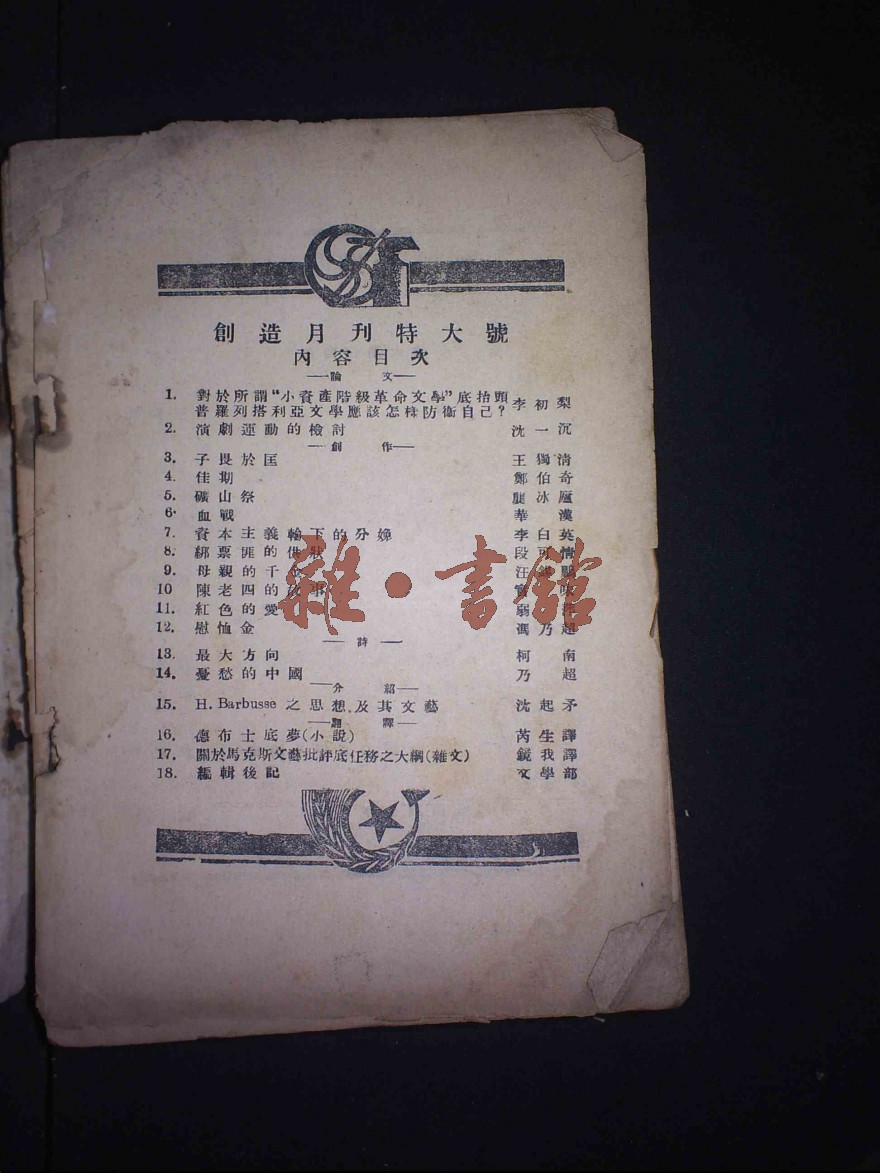 創造月刊特大號
內容目次
——論 文——
1. 對於所謂“小資產階級革命文學”底抬頭
普羅列搭利亞文學應該怎樣防衛自己? 李初梨
2. 演劇運動的檢討 沈一沉
——創 作——
3. 子畏於匡 王獨清
4. 佳期 鄭伯奇
5. 礦山祭 龔冰廬
6. 血戰 華漢
7. 資本主義輪下的分娩 李白英
8. 綁票匪的供狀 段可情
9. 母親的千
10 陳老四的故事
11. 紅色的愛
12. 慰恤金 馮乃超
——詩——
13. 最大方向 柯南
14. 憂愁的中國 乃超
——介 紹——
15. H. Barbusse 之思想及其文藝 沈起矛
——翻 譯——
16. 德布士底夢(小說) 芮生譯
17. 關於馬克斯文藝批評底任務之大綱(雜文) 鏡我譯
18. 編輯後記 文學部
雜·書館